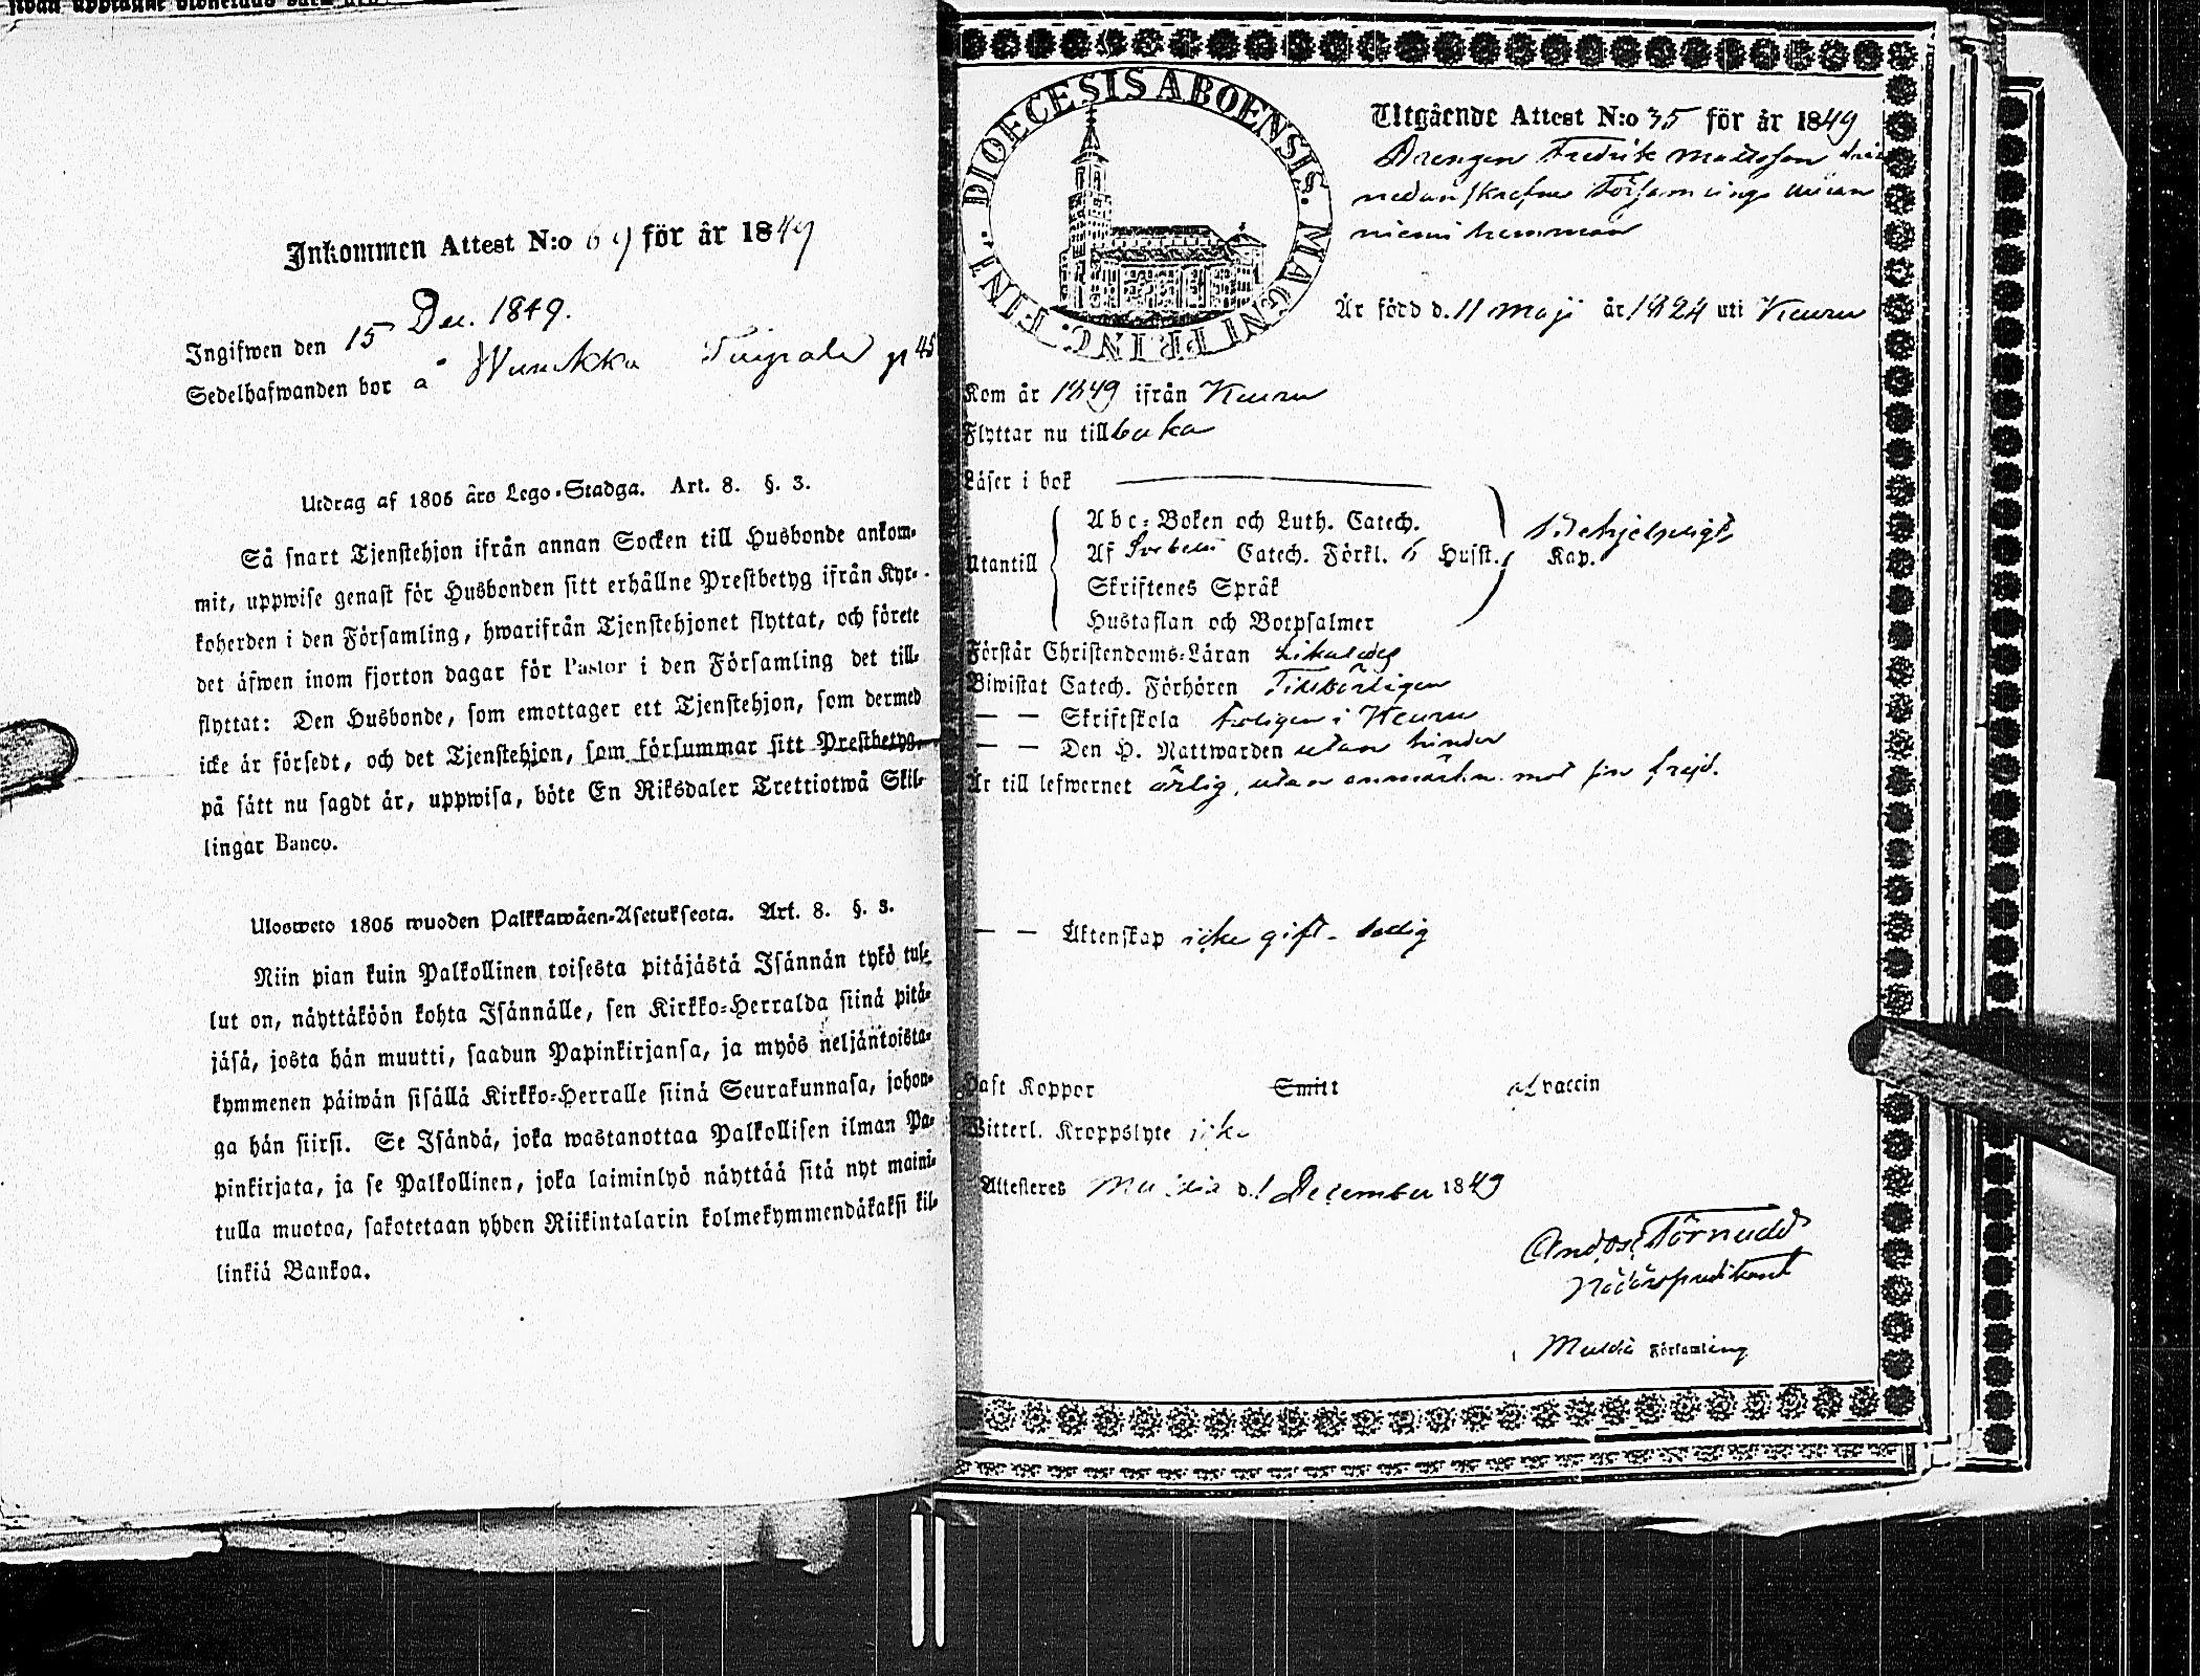 Inkommen Attest N:o 69 för år 1849
Ingifwen den 15 Dec. 1849.
Sedelhafwanden bor å
Utdrag af 1805 års Lego-Stadga. Art. 8. §. 3.
Så snart Tjenstehjon ifrån annan Socken till Husbonde ankom-
mit, uppwise genast för Husbonden sitt erhållne Prestbetyg ifrån Kyr-
koherden i den Församling, hwarifrån Tjenstehjonet flyttat, och förete
det äfwen inom fjorton dagar för Pastor i den Församling det till-
flyttat: Den Husbonde, som emottager ett Tjenstehjon, som dermed
icke är försedt, och det Tjenstehjon, som försummar sitt Prestbetyg,
på sätt nu sagdt är, uppwisa, böte En Riksdaler Trettiotwå Skil-
lingar Banco.
Ulosweto 1805 wuoden Palkkawäen-Asetuksesta. Art. 8. §. 3.
Niin pian kuin Palkollinen toisesta pitäjästä Isännän tykö tul-
lut on, näyttäköön kohta Isännälle, sen Kirkko-Herralda siinä pitä-
jäsä, josta hän muutti, saadun Papinkirjansa, ja myös neljäntoista-
kymmenen päiwän sisällä Kirkko-Herralle siinä Seurakunnasa, johon-
ga hän siirsi. Se Isändä, joka wastanottaa Palkollisen ilman Pa-
pinkirjata, ja se Palkollinen, joka laiminlyö näyttää sitä nyt maini-
tulla muotoa, sakotetaan yhden Riikintalarin kolmekymmendäkaksi kil-
linkiä Bankoa.
DIOECESIS ABOENSIS. MAGNI PRINC. FINL.
Utgående Attest N:o 35 för år 1849
Drengen Fredrik Mattsson från
nedanskrefne Församlings
niemi hemman
Är född d. 11 Maji år 1824 uti Keuru
Kom år 1849 ifrån Keuru
Flyttar nu tillbaka
Läser i bok
Utantill
Abc-Boken och Luth. Catech.
Af Svebelii Catech. Förkl. 6 Hufst. Kap.
Behjelpligt
Skriftenes Språk
Hustaflan och Botpsalmer
Förstår Christendoms-Läran likaledes
Biwistat Catech. Förhören Tillbörligen
— — Skriftskola i Keuru
— — Den H. Nattwarden utan hinder
Är till lefwernet ärlig, utan anmärkn. mot sin frejd.
— — Äktenskap icke gift - ledig
Haft Koppor Smitt af vaccin
Witterl. Kroppslyte icke
Attesteras Multia d. 1 December 1849
Törnudd
Nådårspredikant
i Multia Församling